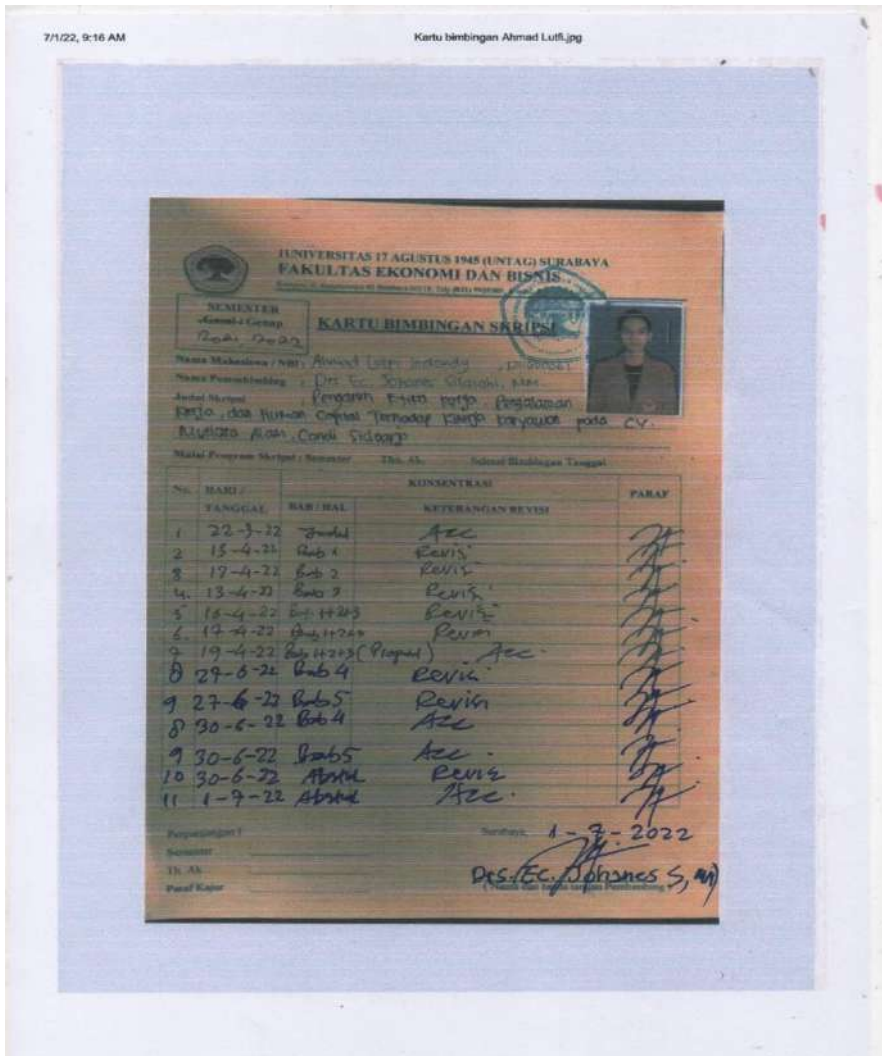 7/1/22, 9:16 AM
Kartu bimbingan Ahmad Lutfi.jpg
UNIVERSITAS 17 AGUSTUS 1945 (UNTAG) SURABAYA
FAKULTAS EKONOMI DAN BISNIS
SEMESTER
Gasal / Genap
KARTU BIMBINGAN SKRIPSI
Nama Mahasiswa / NBI : Ahmad Lutfi
Nama Pembimbing : Drs Ec. Johanes Silalahi, MM.
Judul Skripsi : Pengaruh Etika Kerja, Pengalaman
Kerja, dan Human Capital Terhadap Kinerja karyawan pada CV.
Mutiara Alam, Candi Sidoarjo
Mulai Program Skripsi : Semester Th. Ak. Selesai Bimbingan Tanggal
No. HARI / TANGGAL KONSENTRASI PARAF
BAB / HAL KETERANGAN REVISI
1 22-3-22 Judul Acc
2 15-4-22 Bab 1 Revisi
3 17-4-22 Bab 2 Revisi
4. 13-4-22 Bab 3 Revisi
5 16-4-22 Bab 1+2+3 Revisi
6. 17-4-22 Bab 1+2+3 Revisi
7 19-4-22 Bab 1+2+3 (Proposal) Acc.
8 27-6-22 Bab 4 Revisi
9 27-6-22 Bab 5 Revisi
8 30-6-22 Bab 4 Acc
9 30-6-22 Bab 5 Acc.
10 30-6-22 Abstrak Revisi
11 1-7-22 Abstrak Acc.
Perpanjangan I
Semester
Th. Ak
Paraf Kajur
Surabaya, 1-7-2022
Drs. Ec. Johanes S, MM
(Nama dan tanda tangan Pembimbing)